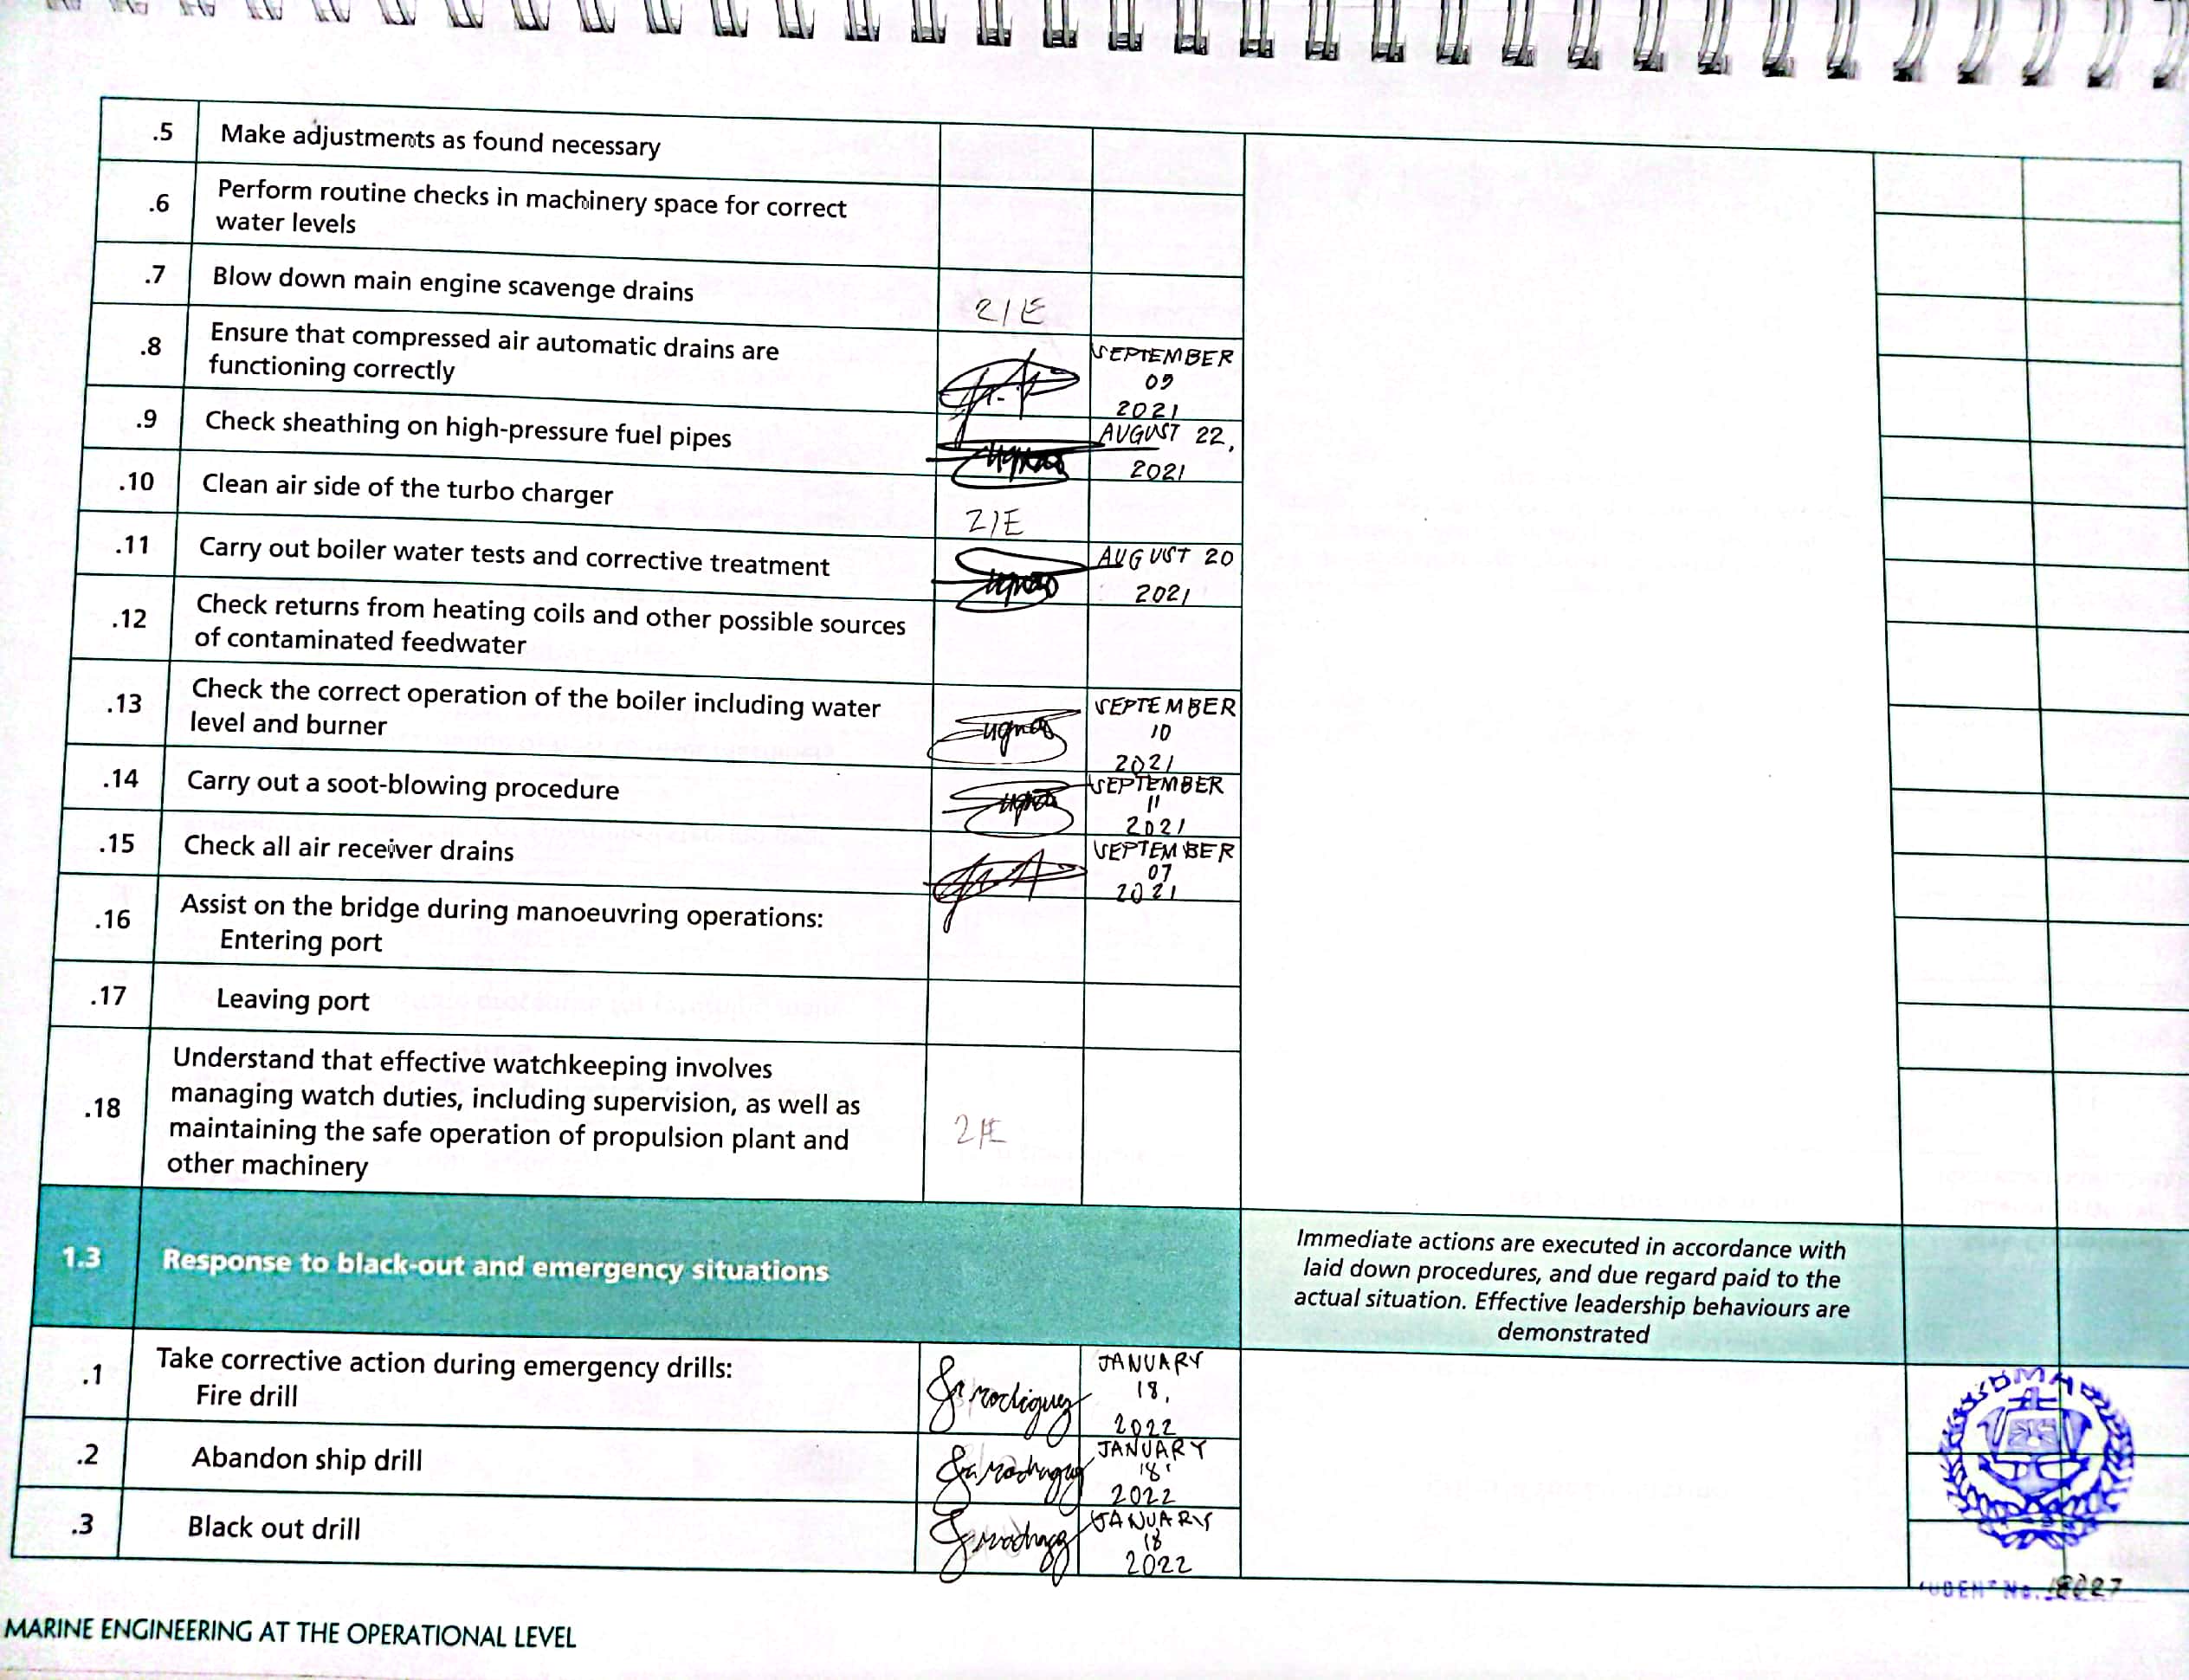 .5 Make adjustments as found necessary
.6 Perform routine checks in machinery space for correct
water levels
.7 Blow down main engine scavenge drains
2/E
.8 Ensure that compressed air automatic drains are
functioning correctly
SEPTEMBER
09
2021
.9 Check sheathing on high-pressure fuel pipes
AUGUST 22,
2021
.10 Clean air side of the turbo charger
2/E
.11 Carry out boiler water tests and corrective treatment
AUGUST 20
2021
.12 Check returns from heating coils and other possible sources
of contaminated feedwater
.13 Check the correct operation of the boiler including water
level and burner
SEPTEMBER
10
2021
.14 Carry out a soot-blowing procedure
SEPTEMBER
11
2021
.15 Check all air receiver drains
SEPTEMBER
07
2021
.16 Assist on the bridge during manoeuvring operations:
Entering port
.17 Leaving port
.18 Understand that effective watchkeeping involves
managing watch duties, including supervision, as well as
maintaining the safe operation of propulsion plant and
other machinery
2/E
1.3 Response to black-out and emergency situations
Immediate actions are executed in accordance with
laid down procedures, and due regard paid to the
actual situation. Effective leadership behaviours are
demonstrated
.1 Take corrective action during emergency drills:
Fire drill
JANUARY
18,
2022
.2 Abandon ship drill
JANUARY
18
2022
.3 Black out drill
JANUARY
18
2022
MARINE ENGINEERING AT THE OPERATIONAL LEVEL